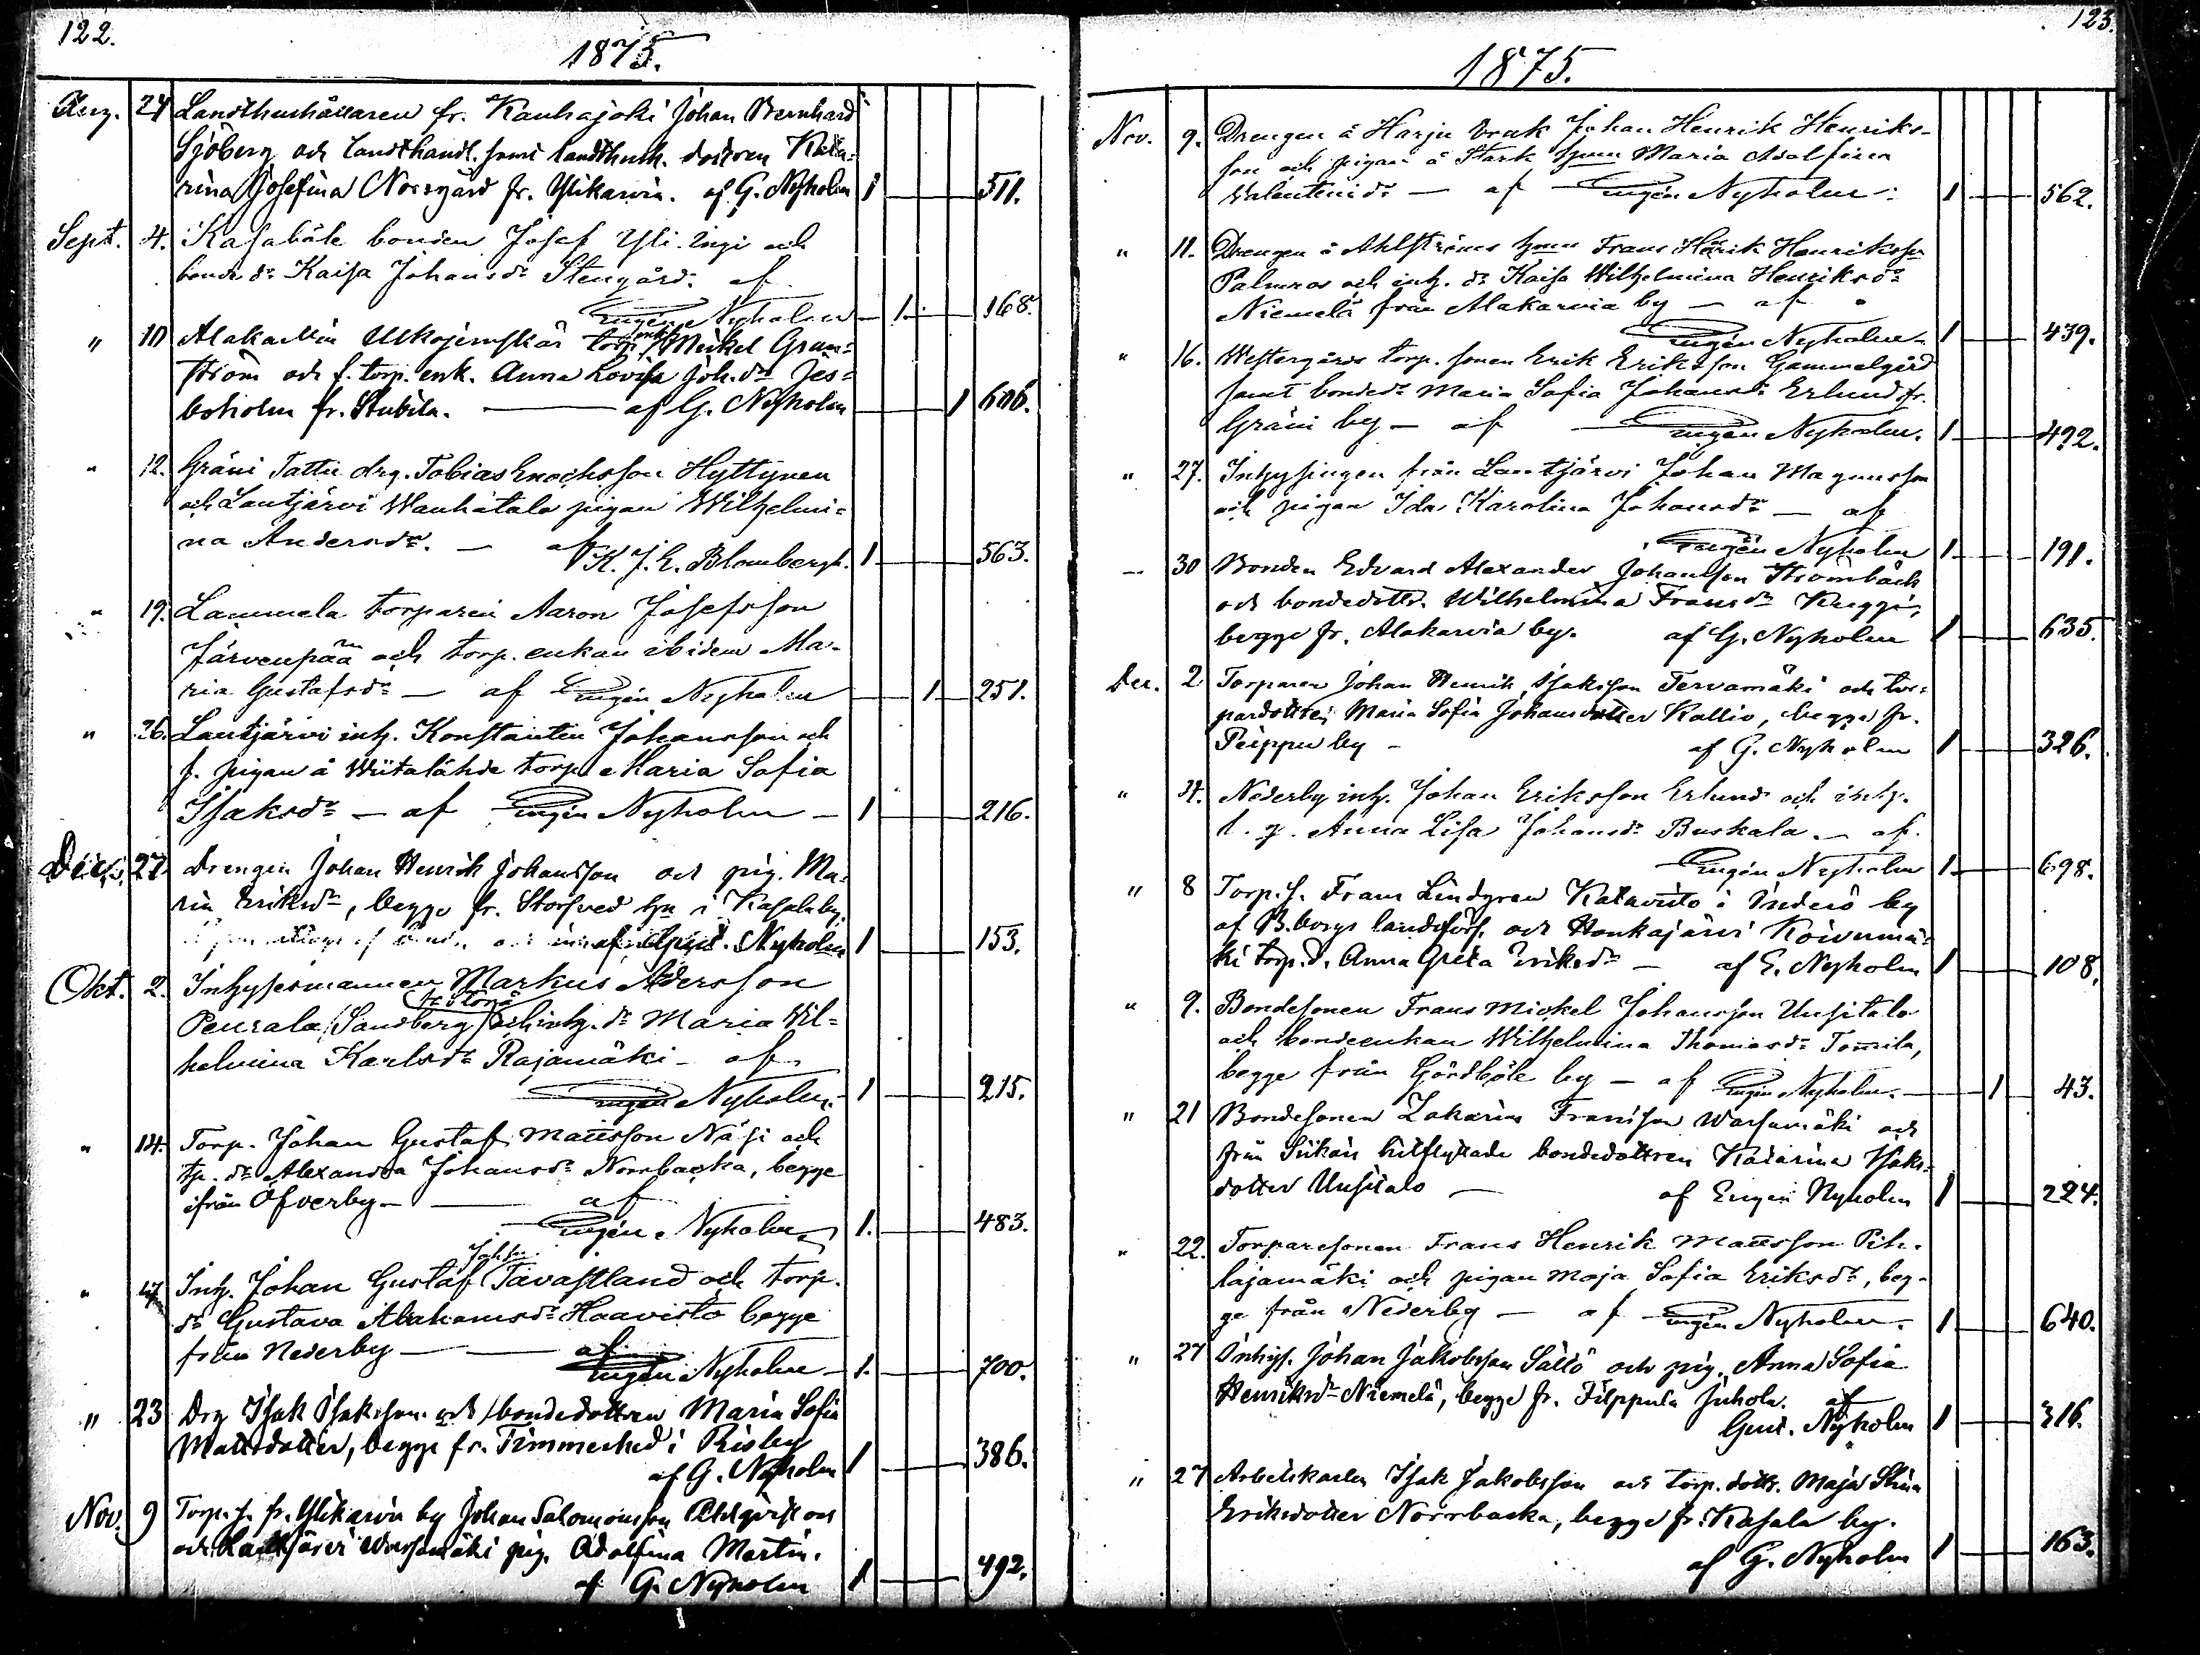 122.
1875.
Aug. 24 Landthushållaren fr. Kauhajoki Johan Bernhard
Sjöberg och landthandl. samt landthush. dottren Kata-
rina Josefina Norrgård fr. Ylikarvia. af G. Nyholm 1 511.
Sept. 4. Kasaböle bonden Josef Yli-Ingi och
bonde dr Kaisa Johansdr Stengård. af
Eugén Nyholm 1 168.
" 10 Alakarvia Ulkojernskär torp. enkl. Mickel Gran-
ström och f. torp. enk. Anna Lovisa Joh.dr Jes-
boholm fr. Stubila. — af G. Nyholm 1 606.
" 12. Gräni Tattu drg. Tobias Enochsson Hyttynen
och Lautjärvi Wanhatalo pigan Wilhelmi-
na Andersdr. — af K. J. E. Blombergh. 1 563.
" 19. Lammela torparen Aaron Josefsson
Järvenpää och torp. enkan ibidem Ma-
ria Gustafsdr — af Eugén Nyholm 1 251.
" 26. Lautjärvi inh. Konstantin Johansson och
f. pigan å Wiitalähde torp Maria Sofia
Isaksdr — af Eugén Nyholm — 1 216.
27 Drengen Johan Henrik Johansson och pig. Ma-
ria Eriksdr, begge fr. Storsved hn i Kasala by.
af Gust. Nyholm 1 153.
Okt. 2. Inhysesmannen Markus Adersson
Peurala (Sandberg) och inh. dr Maria Vil-
helmina Karlsdr Rajamäki — af
Eugén Nyholm. 1 215.
" 14. Torp. Johan Gustaf Mattsson Näsi och
tp. dr Alexandra Johansdr Norrbacka, begge
ifrån Öfverby — af
Eugén Nyholm 1. 483.
" 17 Inh. Johan Gustaf Johsn. Tavastland och torp.
dr Gustava Abrahamsdr Haavisto begge
från Nederby — af
Eugén Nyholm — 1. 700.
" 23 Drg Isak Isaksson och bondedottren Maria Sofia
Mattsdotter, begge fr. Timmerhed i Risby
af G. Nyholm 1 386.
Nov. 9 Torp. s. fr. Ylikarvia by Johan Salomonsson
och Lautjärvi Warsamäki pig. Adolfina Martin.
af G. Nyholm 1 492.
123.
1875.
Nov. 9. Drengen å Harju Johan Henrik Henriks-
son och pigan å Stark hmn Maria Adolfina
Valentinidr — af Eugén Nyholm. 1 562.
" 11. Drengen å Ahlströms hmn Frans Henrik Henriksson
Palmros och inh. dr Kaisa Wilhelmina Henriksdr
Niemelä från Alakarvia by — af
Eugén Nyholm 1 439.
" 16. Westergårds torp. sonen Erik Eriksson Gammelgård
samt bondedr Maria Sofia Johansdr Erlund fr.
Gräni by — af Eugén Nyholm. 1 492.
" 27. Inhysingen från Lautjärvi Johan Magnusson
och pigan Ida Karolina Johansdr — af
Eugén Nyholm 1 191.
— 30 Bonden Edvard Alexander Johansson Strömbäck
och bondedottr. Wilhelmina Fransdr Kuggi,
begge fr. Alakarvia by. af G. Nyholm 1 635.
Dec. 2 Torparen Johan Henrik Isaksson Tervamäki och tor-
pardottren Maria Sofia Johansdotter Kallio, begge fr.
Peippu by — af G. Nyholm 1 326.
" 4. Nederby inh. Johan Eriksson Erlund och inh.
Anna Lisa Johansdr Buskala. — af
Eugén Nyholm 1 698.
" 8 Torp. s. Frans Lindgren Katavisto i Inderö by
af B.borgs landsförs. och Honkajärvi Koivumä-
ki torp. d. Anna Greta Eriksdr — af E. Nyholm 1 108.
" 9. Bondesonen Frans Mickel Johansson Uusitalo
och bondeenkan Wilhelmina Thomasdr Tomila,
begge från Gårdböle by — af Eugén Nyholm. — 1 43.
" 21 Bondesonen Zakarias Fransson Warsamäki och
från Siikais hitflyttade bondedottren Katarina Isaks-
dotter Uusitalo — af Eugén Nyholm 1 224.
" 22. Torparesonen Frans Henrik Mattsson Pih-
lajamäki och pigan Maja Sofia Eriksdr, beg-
ge från Nederby — af Eugén Nyholm. 1 640.
" 27 Inhys. Johan Jakobsson Sällö och pig. Anna Sofia
Henriksdr Niemelä, begge fr. Filppula Juhola. af
Gust. Nyholm 1 316.
" 27 Arbetskarlen Isak Jakobsson och torp. dottr. Maja Stina
Eriksdotter Norrbacka, begge fr. Kasala by.
af G. Nyholm 1 163.